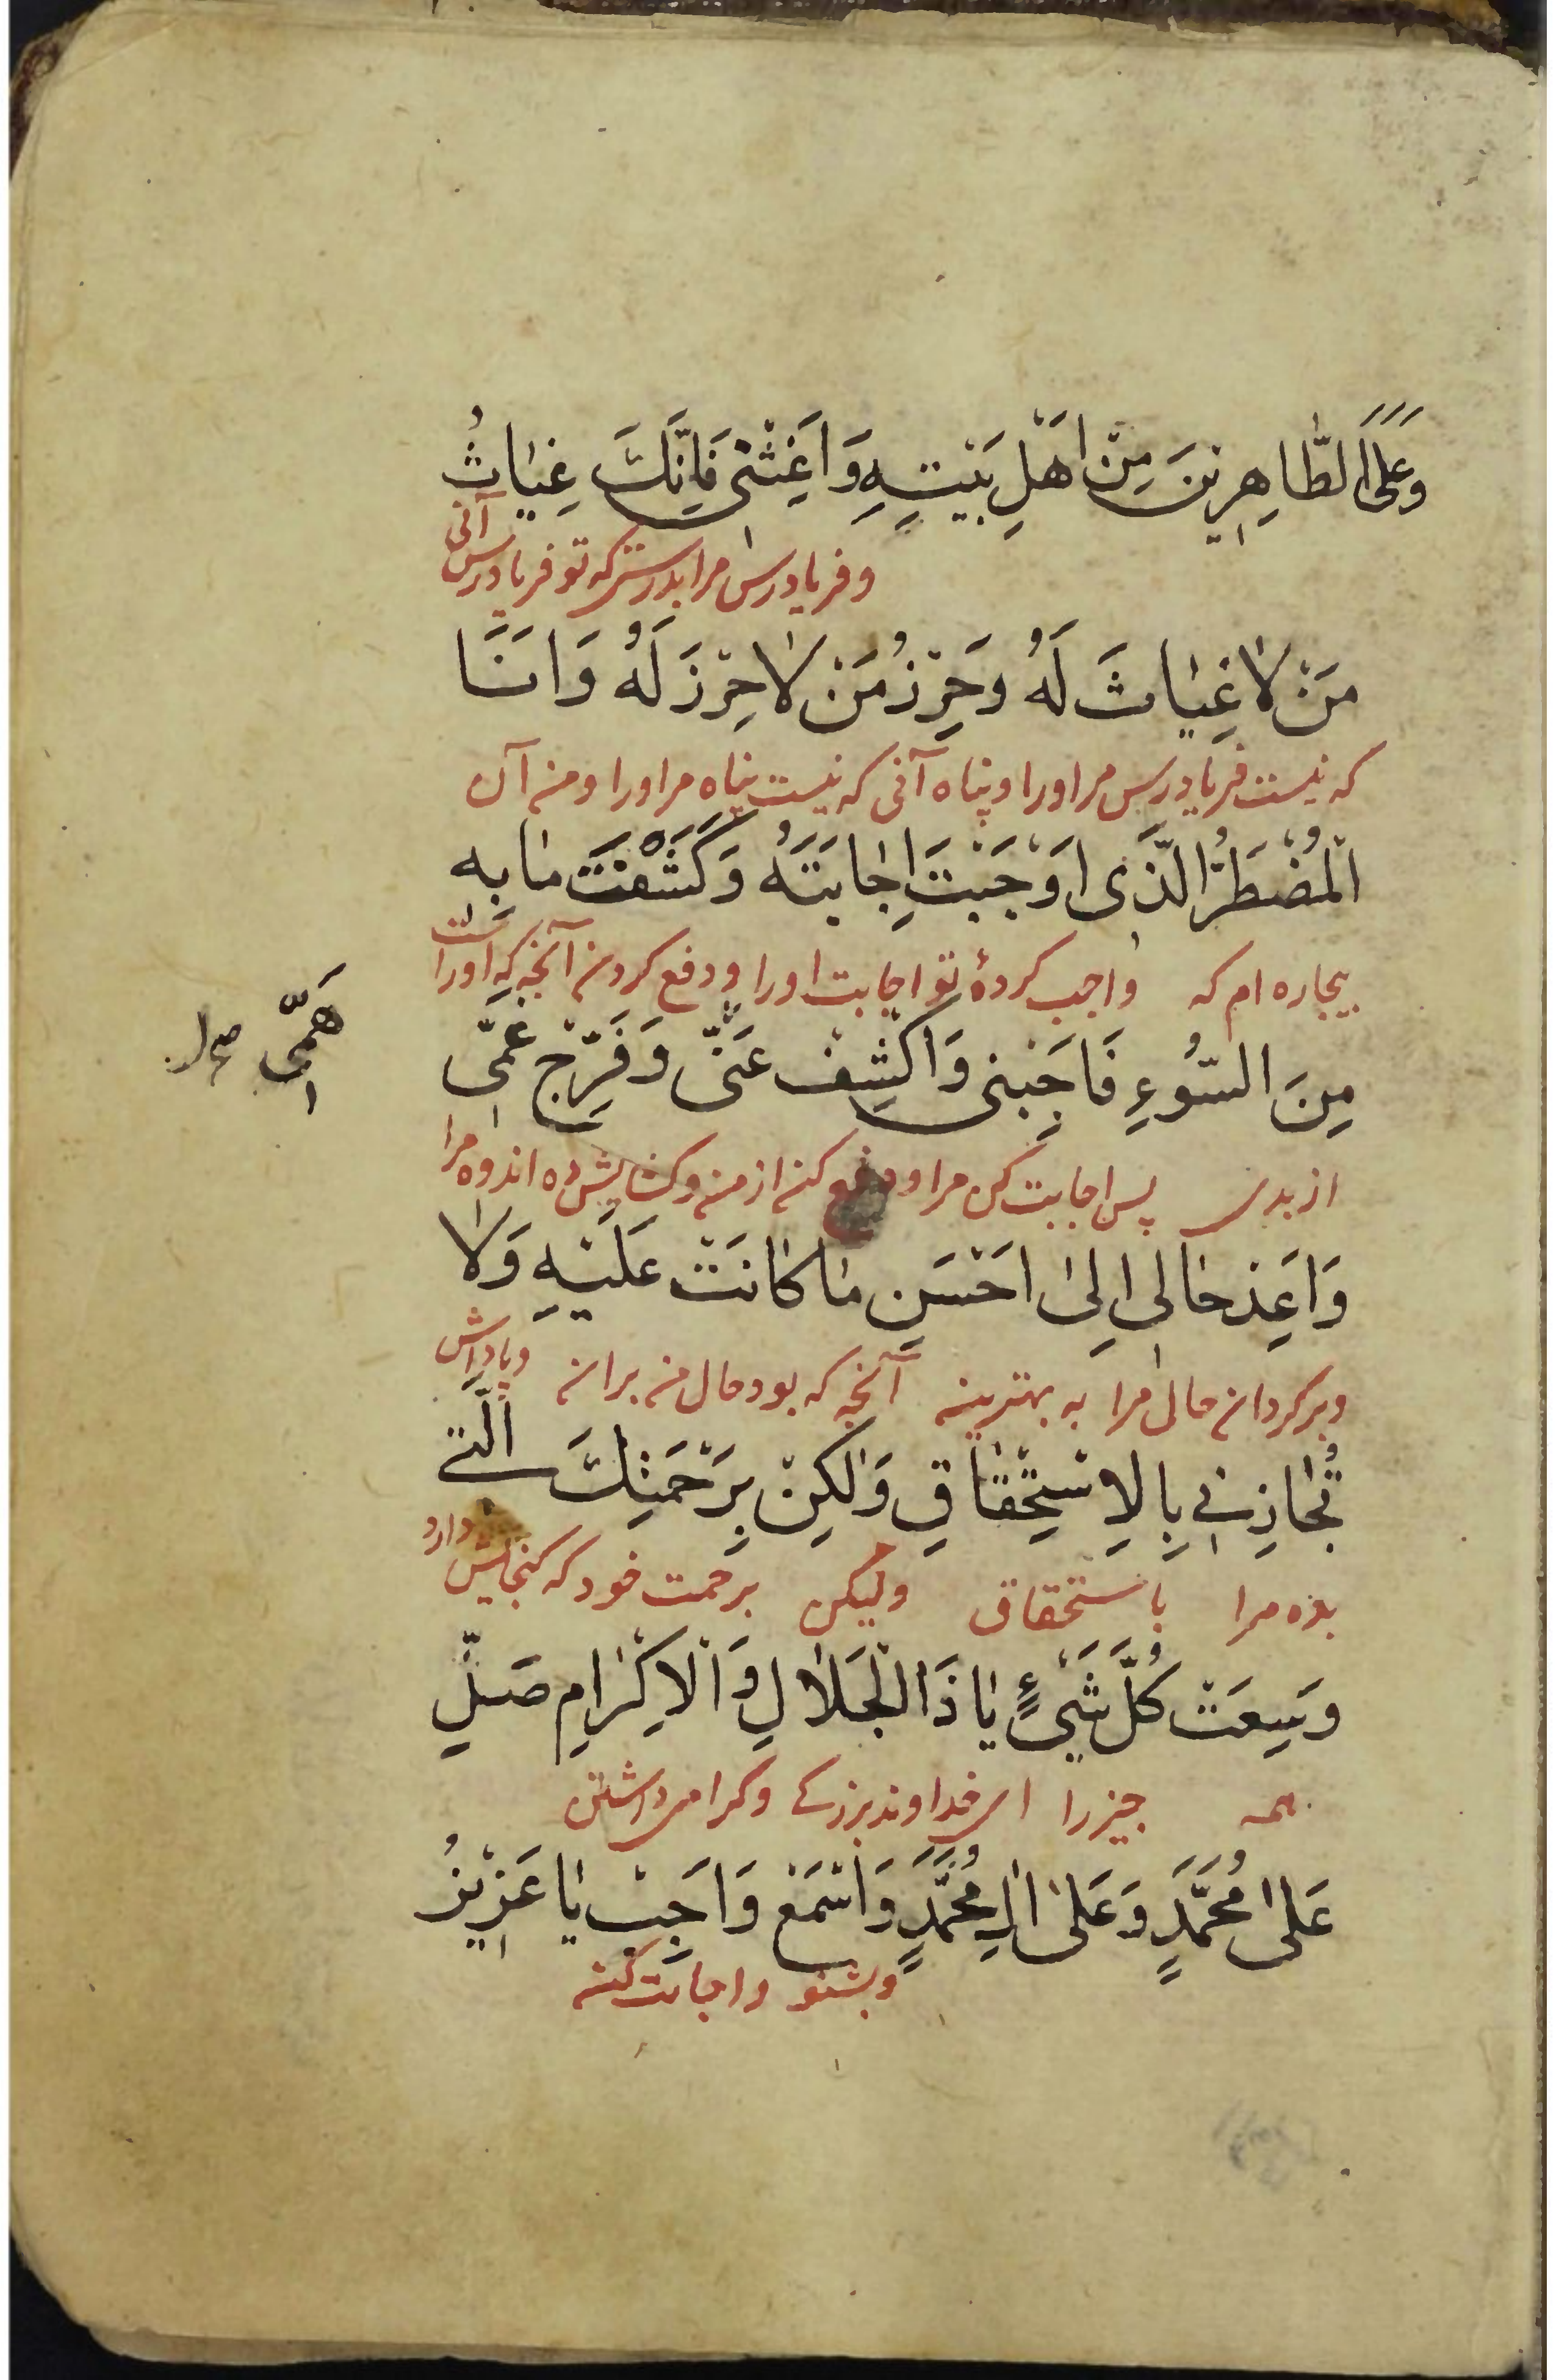 وَعَلَى الطَّاهِرِينَ مِنْ اَهْلِ بَيْتِهِ وَاَغِثْنِى فَاِنَّكَ غِيَاثُ
و فریادرس مرا بدرستی که تو فریادرس آنی
مَنْ لَا غِيَاثَ لَهُ وَحِرْزُ مَنْ لَا حِرْزَ لَهُ وَاَنَا
که نیست فریادرس مر او را و پناه آنی که نیست پناه مر او را و من آن
الْمُضْطَرُّ الَّذِى اَوْجَبْتَ اِجَابَتَهُ وَكَشَفْتَ مَا بِهِ
بیچاره ام که واجب کردهٔ تو اجابت او را و دفع کردن آنچه که او راست
مِنَ السُّوءِ فَاَجِبْنِى وَاكْشِفْ عَنِّى وَفَرِّجْ غَمِّى
هَمِّى
از بدی پس اجابت کن مرا و دفع کن از من و کشایش ده اندوه مرا
وَاَعِدْ حَالِى اِلَى اَحْسَنِ مَا كَانَتْ عَلَيْهِ وَلَا
و برکردان حال مرا به بهترین آنچه که بود حال من بران و پاداش
تُجَازِنِى بِالْاِسْتِحْقَاقِ وَلَكِنْ بِرَحْمَتِكَ الَّتِى
بده مرا باستحقاق ولیکن برحمت خود که کنجایش دارد
وَسِعَتْ كُلَّ شَىْءٍ يَا ذَا الْجَلَالِ وَالْاِكْرَامِ صَلِّ
همه چیز را ای خداوند بزرکی و کرامی داشتن
عَلَى مُحَمَّدٍ وَعَلَى اٰلِ مُحَمَّدٍ وَاسْمَعْ وَاَجِبْ يَا عَزِيزُ
و بشنو و اجابت کن